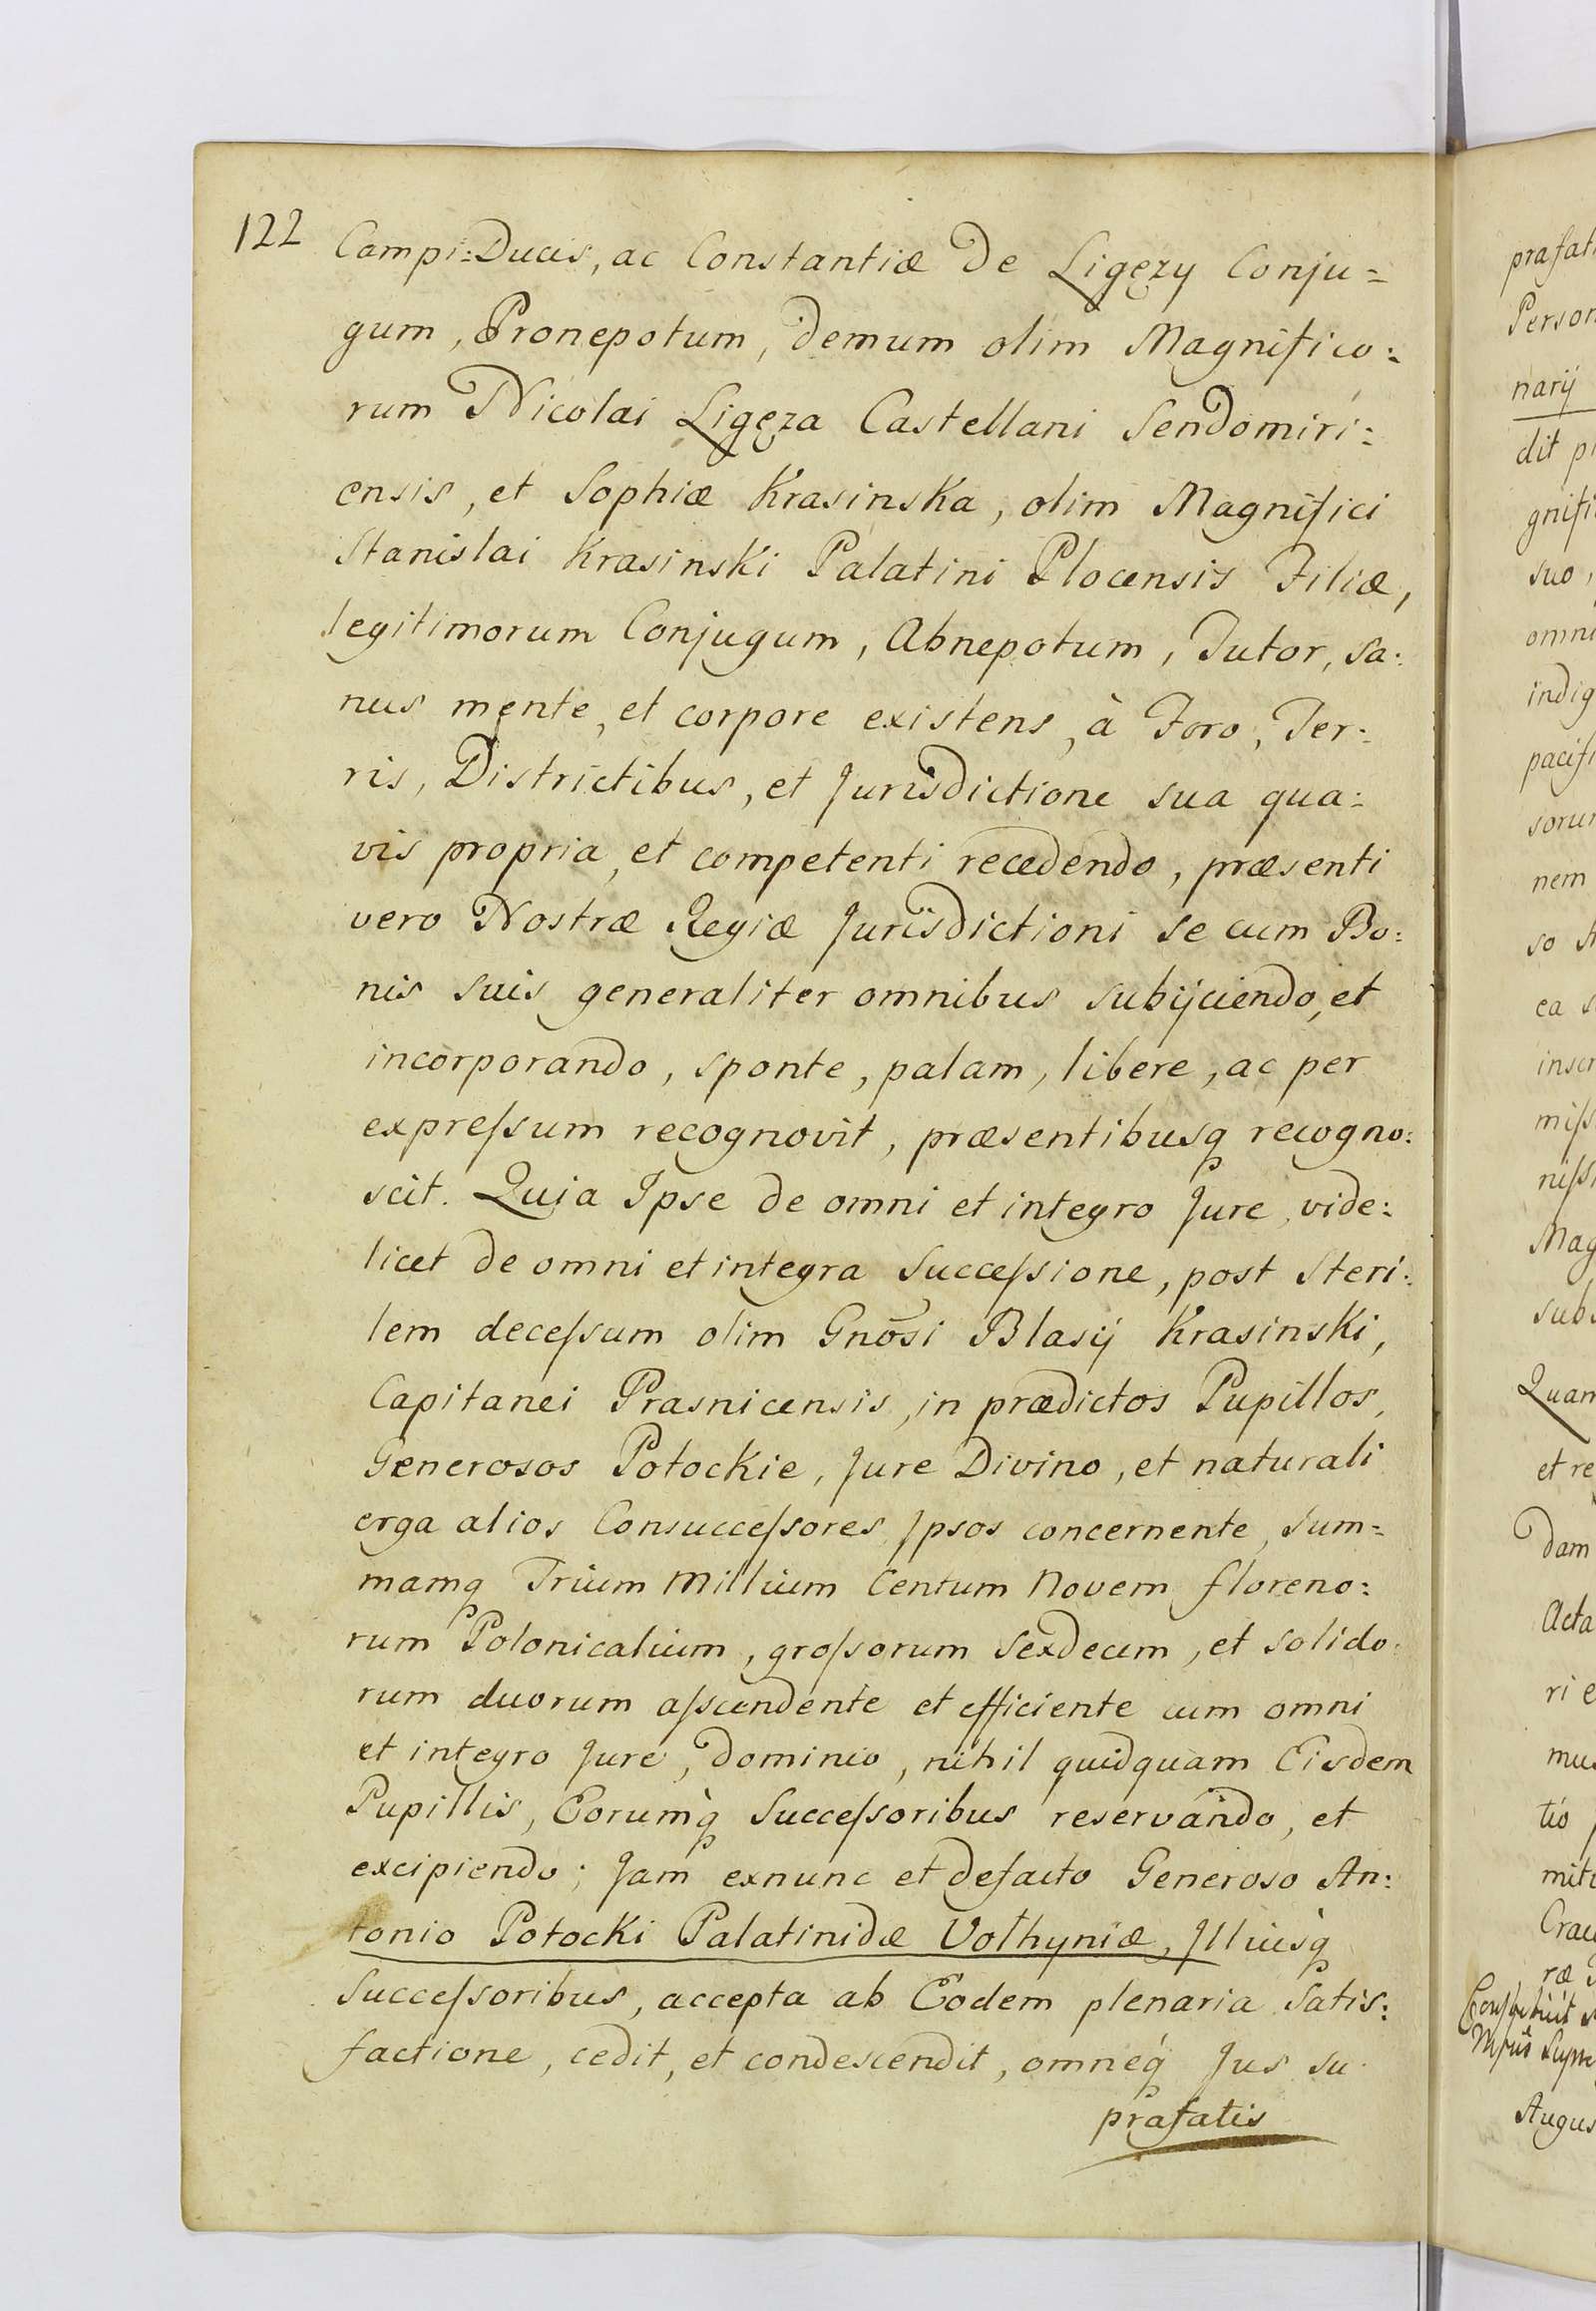 122
Campi=Ducis, ac Constantiæ de Ligęzy Conju=
gum, Pronepotum, demum olim Magnifico=
rum Nicolai Ligęza Castellani Sendomiri=
ensis, et Sophiæ Krasinska, olim Magnifici
Stanislai Krasinski Palatini Plocensis Filiæ,
legitimorum Conjugum, Abnepotum, Tutor, sa=
nus mente, et corpore existens, à Foro, Ter=
ris, Districtibus, et Jurisdictione sua qua=
vis propria, et competenti recedendo, præsenti
vero Nostræ Regiæ Jurisdictioni se cum Bo=
nis suis generaliter omnibus subijciendo, et
incorporando, sponte, palam, libere, ac per
expreſsum recognovit, præsentibusq recogno=
scit. Quia Ipse de omni et integro Jure, vide=
licet de omni et integra Succeſsione, post Steri=
lem deceſsum olim Gnōsi Blasij Krasinski,
Capitanei Prasnicensis, in prædictos Pupillos,
Generosos Potockie, Jure Divino, et naturali
erga alios Consucceſsores Ipsos concernente, Sum=
mamq Trium Millium Centum Novem floreno=
rum Polonicalium, groſsorum Sexdecem, et solido=
rum duorum aſscendente et efficiente cum omni
et integro Jure, Dominio, nihil quidquam Eisdem
Pupillis, Eorumq̀ Succeſsoribus reservando, et
excipiendo; Jam exnunc et defacto Generoso An=
tonio Potocki Palatinidæ Volhyniæ, Illiusq̀
Succeſsoribus, accepta ab Eodem plenaria Satis=
factione, cedit, et condescendit, omneq́ Jus su
præfatis
præfati
Person
narij
dit
gnifi
suo,
omni
indig
pacifi
sorum
nem
so
ea
inscr
miſs
niſsi
Mag
subs
Quam
et re
dam
Acta
ri e
mus
tio
miti
Crac
ræ
Augus